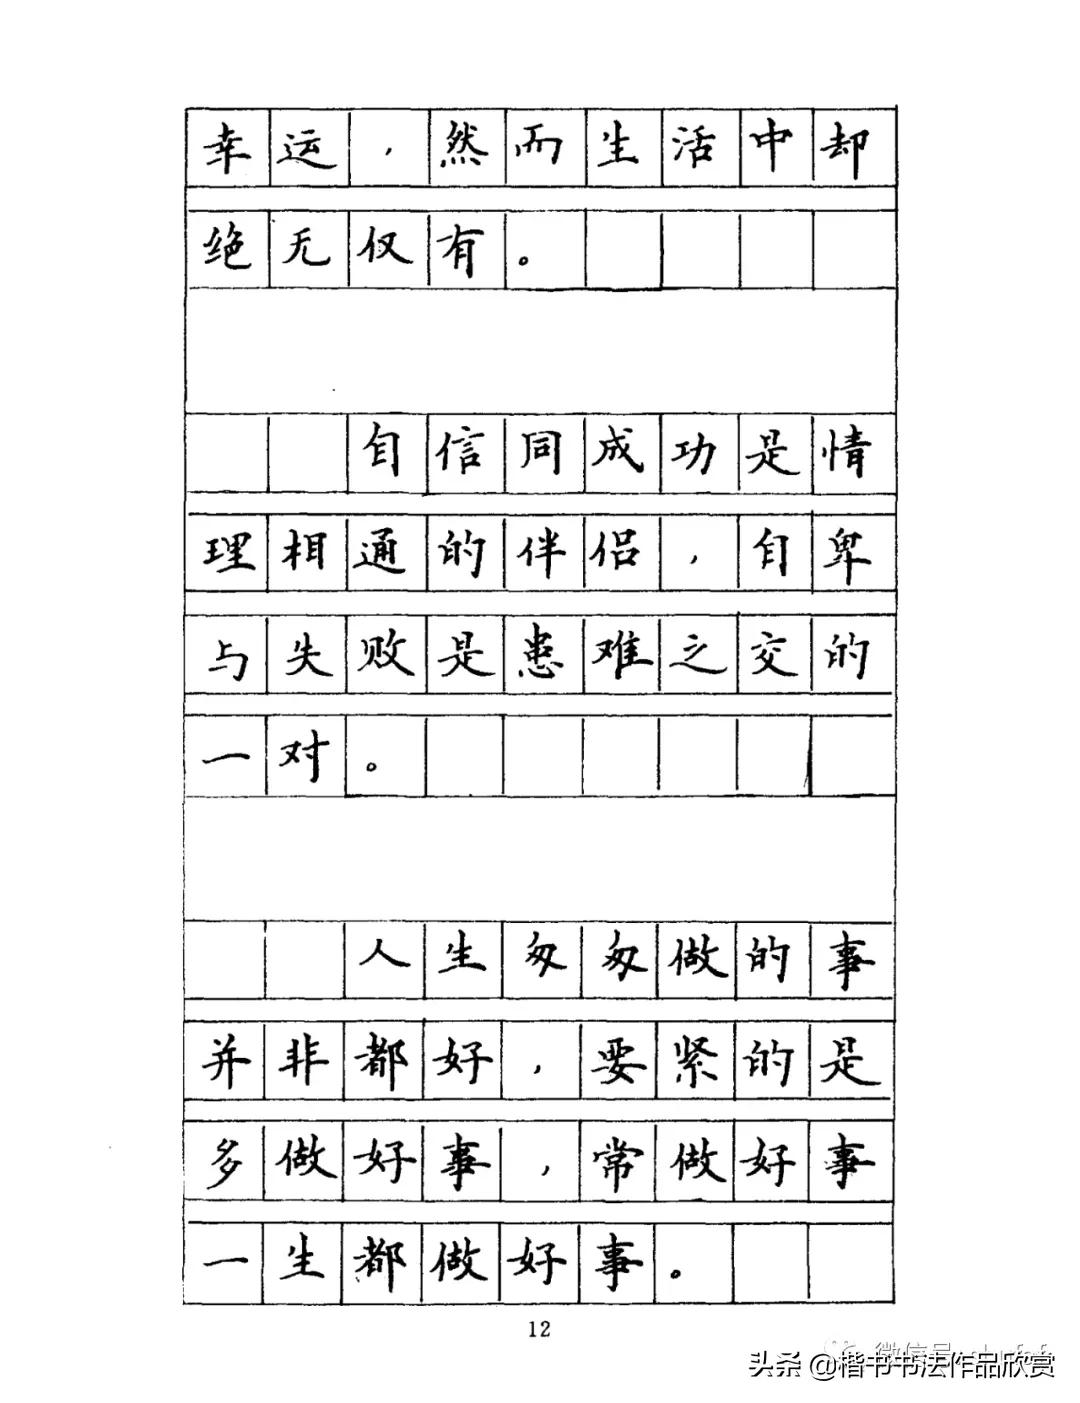 幸运，然而生活中却
绝无仅有。
自信同成功是情
理相通的伴侣，自卑
与失败是患难之交的
一对。
人生匆匆做的事
并非都好，要紧的是
多做好事，常做好事
一生都做好事。
12
微信号
头条@楷书书法作品欣赏